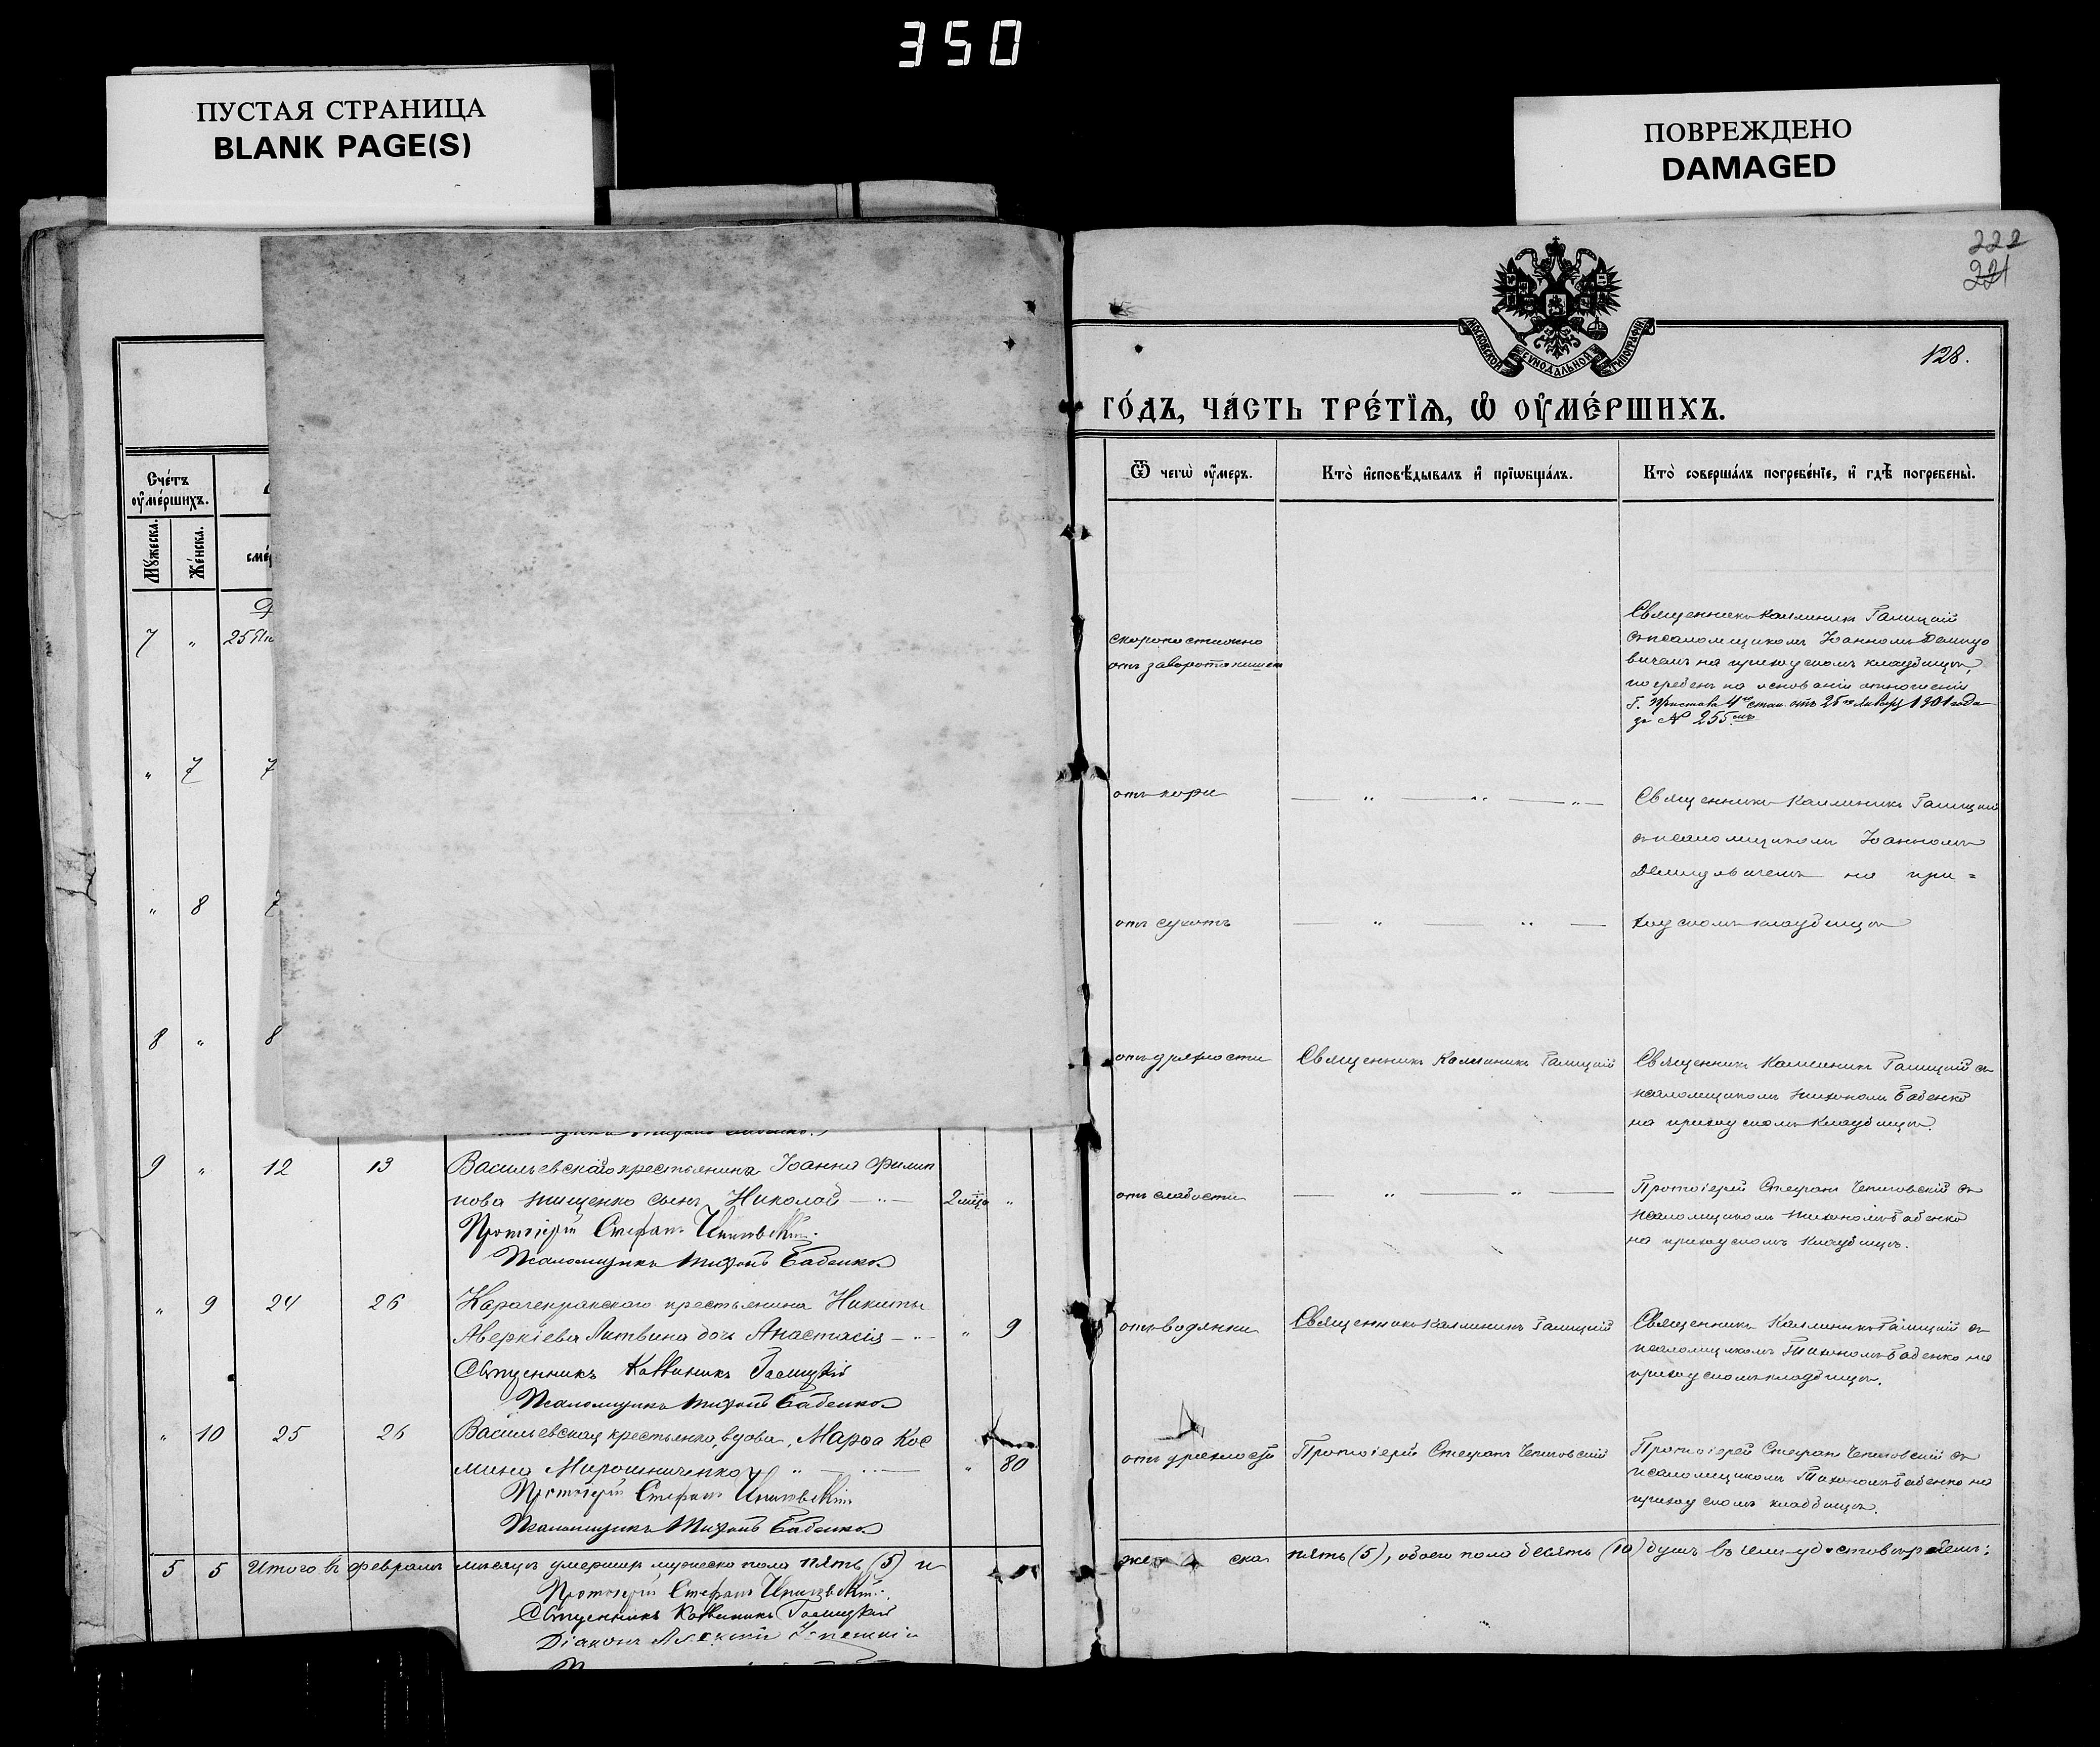 350
ПУСТАЯ СТРАНИЦА
BLANK PAGE(S)
ПОВРЕЖДЕНО
DAMAGED
222
221
МОСКОВСКОЙ СѴНОДАЛЬНОЙ ТИПОГРАФІИ
128.
го́дъ, ча́сть тре́тїѧ, ѡ҆ ᲂу҆ме́ршихъ.
Сче́тъ
ᲂу҆ме́ршихъ.
Мꙋжеска.
Же́нска.
Ѿ чегѡ̀ ᲂу҆́меръ.
Кто̀ и҆сповѣ́дывалъ и҆ прїѡбща́лъ.
Кто̀ соверша́лъ погребе́нїе, и҆ гдѣ̀ погребены̀.
7 " 25
скоропостижно
отъ заворота кишекъ
Священникъ Каллиникъ Галицкій
съ псаломщикомъ Іоанномъ Демидо
вичемъ на приходскомъ кладбищѣ,
погребенъ на основаніи отношенія
Г. Пристава 4го стан. отъ 25го Января 1901 года
за № 255мъ
" 7 7
отъ кори
Священникъ Каллиникъ Галицкій
съ псаломщикомъ Іоанномъ
Демидовичемъ на при=
" 8 7
отъ сухотъ
ходскомъ кладбищѣ
8 " 8
отъ дряхлости
Священникъ Каллиникъ Галицкій
Священникъ Каллиникъ Галицкій съ
псаломщикомъ Тихономъ Бабенко
на приходскомъ кладбищѣ.
9 " 12 13
Васильевскаго крестьянина Іоанна Филип
пова Тищенко сынъ Николай — " —
2 мца "
Протоіерей Стефанъ
Псаломщикъ Тихонъ Бабенко
отъ слабости
Протоіерей Стефанъ
псаломщикомъ Тихономъ Бабенко
на приходскомъ кладбищѣ.
" 9 24 26
Карачекракскаго крестьянина Никиты
Аверкіева Литвина дочь Анастасія — " —
" 9
Священникъ Каллиникъ Галицкій
Псаломщикъ Тихонъ Бабенко
отъ водянки
Священникъ Каллиникъ Галицкій
Священникъ Каллиникъ Галицкій съ
псаломщикомъ Тихономъ Бабенко на
приходскомъ кладбищѣ.
" 10 25 26
Васильевская крестьянка, вдова, Марѳа Кос
мина Мирошниченкова " —
" 80
Протоіерей Стефанъ
Псаломщикъ Тихонъ Бабенко
отъ дряхлости
Протоіерей Стефанъ
Протоіерей Стефанъ
псаломщикомъ Тихономъ Бабенко на
приходскомъ кладбищѣ.
5 5 Итого въ февралѣ мѣсяцѣ умершихъ мужеска пола пять (5) и
жен ска пять (5), обоего пола десять (10) душъ въ чемъ удостовѣряемъ:
Протоіерей Стефанъ
Священникъ Каллиникъ Галицкій
Діаконъ